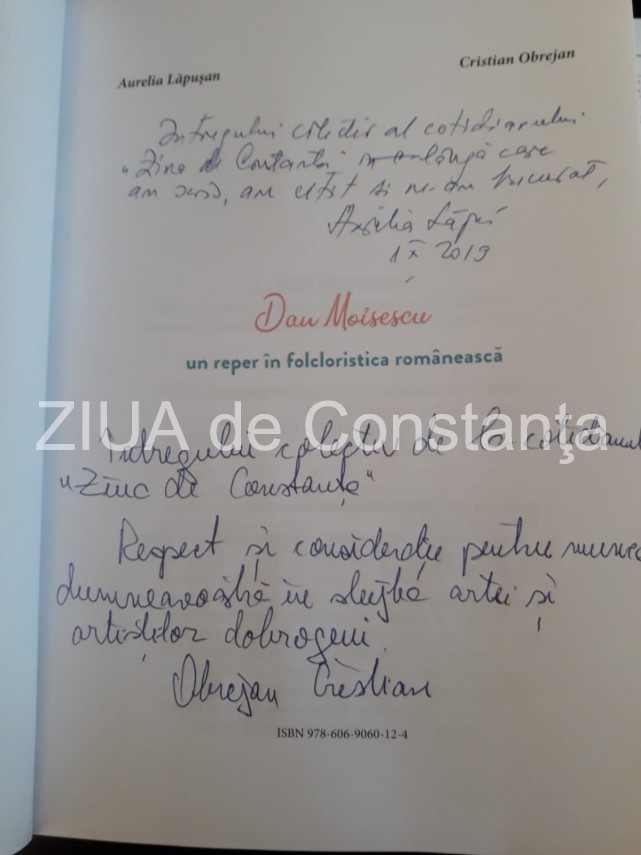 Aurelia Lăpușan
Cristian Obrejan
Întregului colectiv al cotidianului
"Ziua de Constanța" care
am scris, am citit și ne-am bucurat,
Aurelia Lăpuș
1 X 2019
Dan Moisescu
un reper în folcloristica românească
ZIUA de Constanța
Întregului colectiv de la cotidianul
"Ziua de Constanța"
Respect și considerație pentru munca
dumneavoastră în slujba artei și
artiștilor dobrogeni.
Obrejan Cristian
ISBN 978-606-9060-12-4